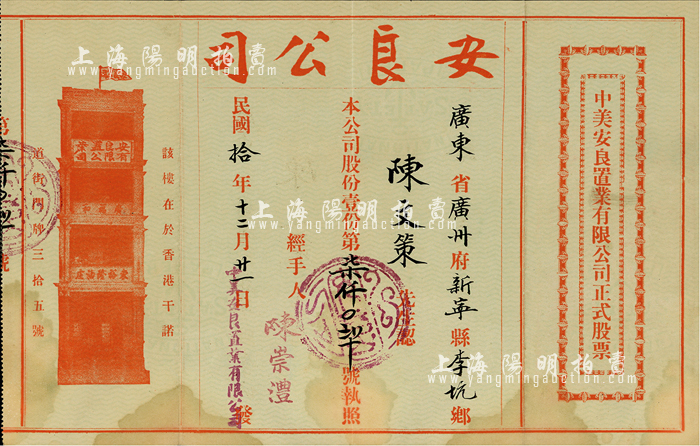 安良公司
中美安良置業有限公司正式股票
廣東省廣州府新寧縣李坑鄉
陳文策先生認
本公司股份壹份第柒仟〇號執照
經手人陳崇澧
民國拾年十二月廿一日
中美安良置業有限公司發
該樓在於香港干諾
道街門牌三拾五號
安良置業
有限公司
第柒仟〇號
上海陽明拍賣
www.yangmingauction.com
上海陽明拍賣
www.yangmingauction.com
上海陽明拍賣
www.yangmingauction.com